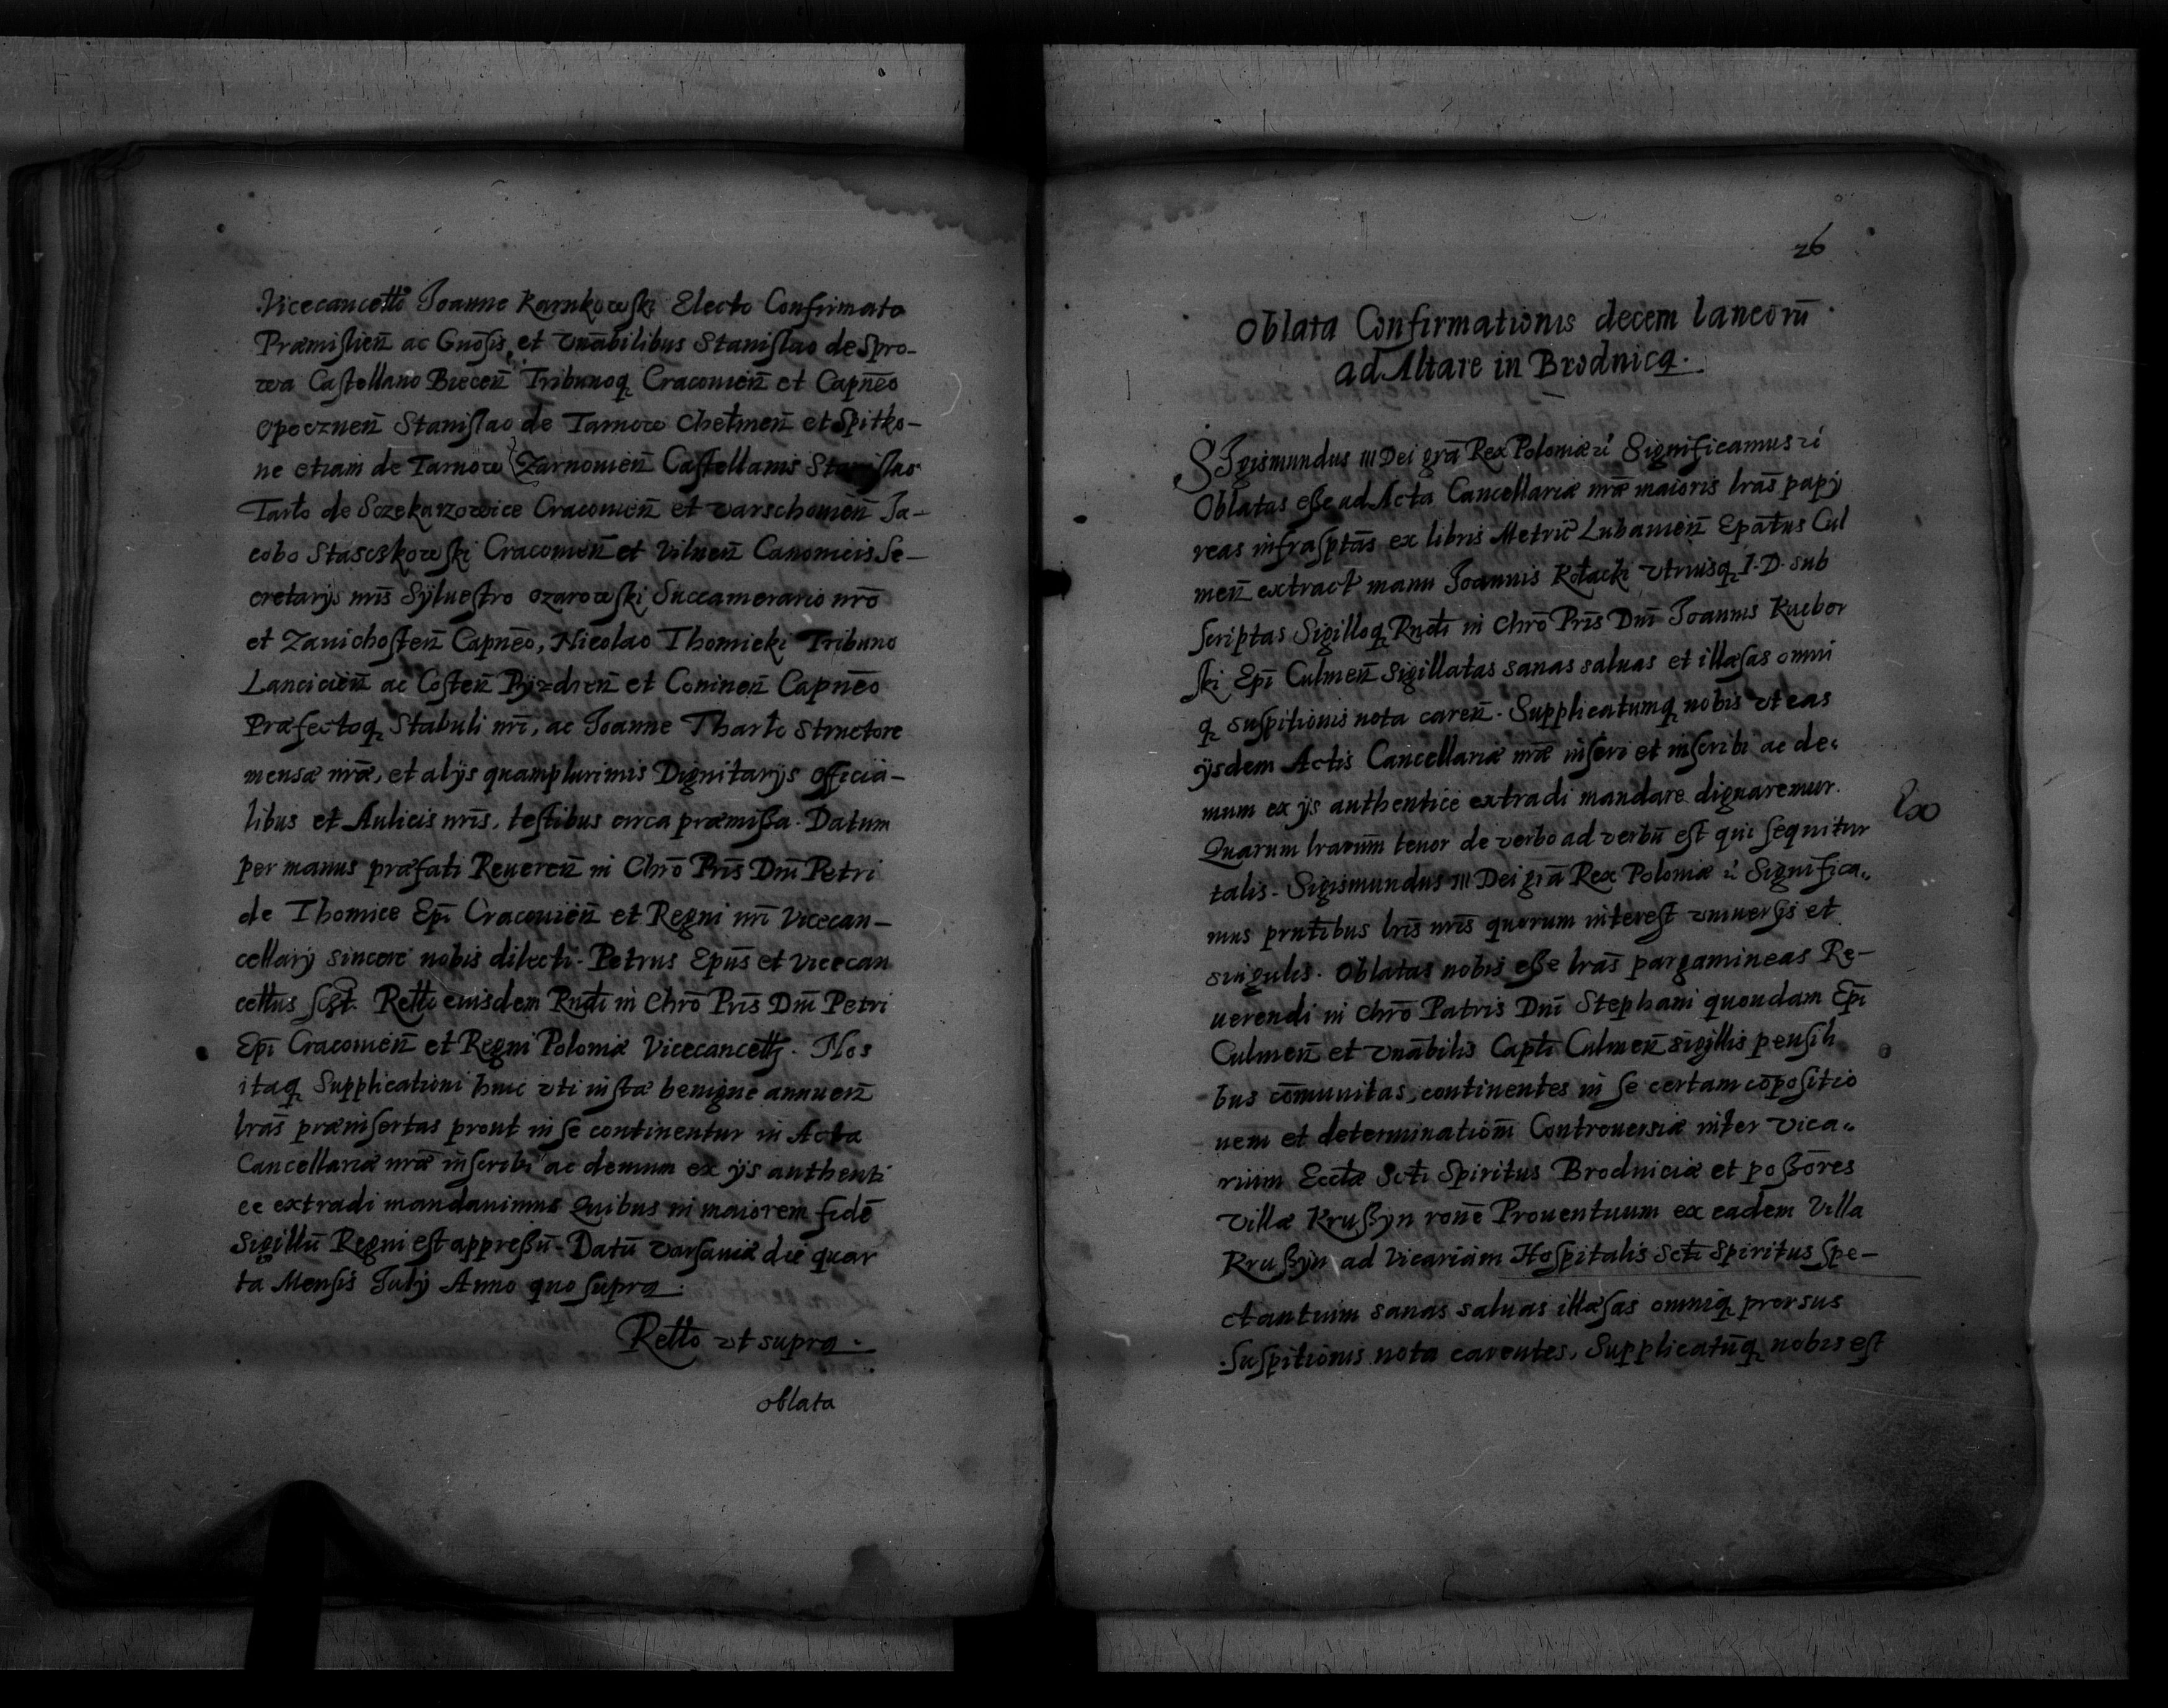 Vicecancełło Joanne Karnkowski Electo Confirmato
Præmislien̄ ac Gnōsis, et Vnābilibus Stanislao de Spro-
wa Castellano Biecen̄ Tribunoq Cracouien̄ et Capnēo
Opocznen̄ Stanislao de Tarnow Chełmen̄ et Spitko-
ne etiam de Tarnow Zarnouien̄ Castellanis Stanislao
Tarło de Sczekarzowice Cracouien̄ et varschouien̄ Ja-
cobo Stascskowski Cracouien̄ et Vilnen̄ Canonicis Se-
cretarijs nrīs Sÿluestro Ozarowski Succamerario nrō
et Zauichosten̄ Capnēo, Nicolao Thomicki Tribuno
Lancicien̄ ac Costen̄ Pÿzdren̄ et Coninen̄ Capnēo
Præfectoq Stabuli nrī, ac Joanne Tharło Structore
mensæ nræ, et alijs quamplurimis Dignitarijs officia-
libus et Aulicis nrīs, testibus circa præmißa. Datum
per manus præfati Reueren̄ in Chrō Prīs Dnī Petri
de Thomice Epī Cracouien̄ et Regni nrī Vicecan-
cellarij sincere nobis dilecti. Petrus Epūs et Vicecan
cełłus scst. Rełło eiusdem Rndi in Chrō Prīs Dnī Petri
Epī Cracouien̄ et Regni Poloniæ Vicecancełłj. Nos
itaq Supplicationi huic vti iustæ benigne annuen̄
lrās præinsertas prout in se continentur in Acta
Cancellariæ nræ inscribi ac demum ex ijs authenti
ce extradi mandauimus Quibus in maiorem fidē
Sigillū Regni est appreßū. Datū varsauiæ die quar
ta Mensis Julij Anno quo supra.
Rełło vt supra.
oblata
26
Oblata Confirmationis decem laneorū
ad Altare in Brodnica.
SIgismundus III Dei grā Rex Poloniæ rć Significamus rć
Oblatas eße ad Acta Cancellariæ nræ maioris lrās papij
reas infrascptās ex libris Metric̄ Lubauien̄ Epātus Cul
men̄ extract manu Joannis Kołacki vtriusq I. D. sub
scriptas Sigilloq Rndi in Chrō Prīs Dnī Joannis Kucbor
ski Epī Culmen̄ Sigillatas sanas saluas et illæsas omni
q suspitionis nota caren̄. Supplicatumq nobis vt eas
ijsdem Actis Cancellariæ nræ inseri et inscribi ac de-
mum ex ijs authentice extradi mandare dignaremur.
Quarum lrarūm tenor de verbo ad verbū est qui sequitur
talis. Sigismundus III Dei grā Rex Poloniæ rć Significa-
mus prntibus lrīs nrīs quorum interest vniuersis et
singulis. Oblatas nobis eße lrās pargamineas Re-
uerendi in Chrō Patris Dnī Stephani quondam Epī
Culmen̄ et vnābilis Capłi Culmen̄ sigillis pensili
bus cōmunitas, continentes in se certam cōpositio
nem et determinatiom̄ Controuersiæ inter Vica-
rium Eccłæ Scti Spiritus Brodniciæ et poßōres
villæ Krußÿn ronē Prouentuum ex eadem Villa
Krußÿn ad Vicariam Hospitalis Scti Spiritus spe-
ctantium sanas saluas illæsas omniq prorsus
suspitionis nota carentes, Supplicatūq nobis est